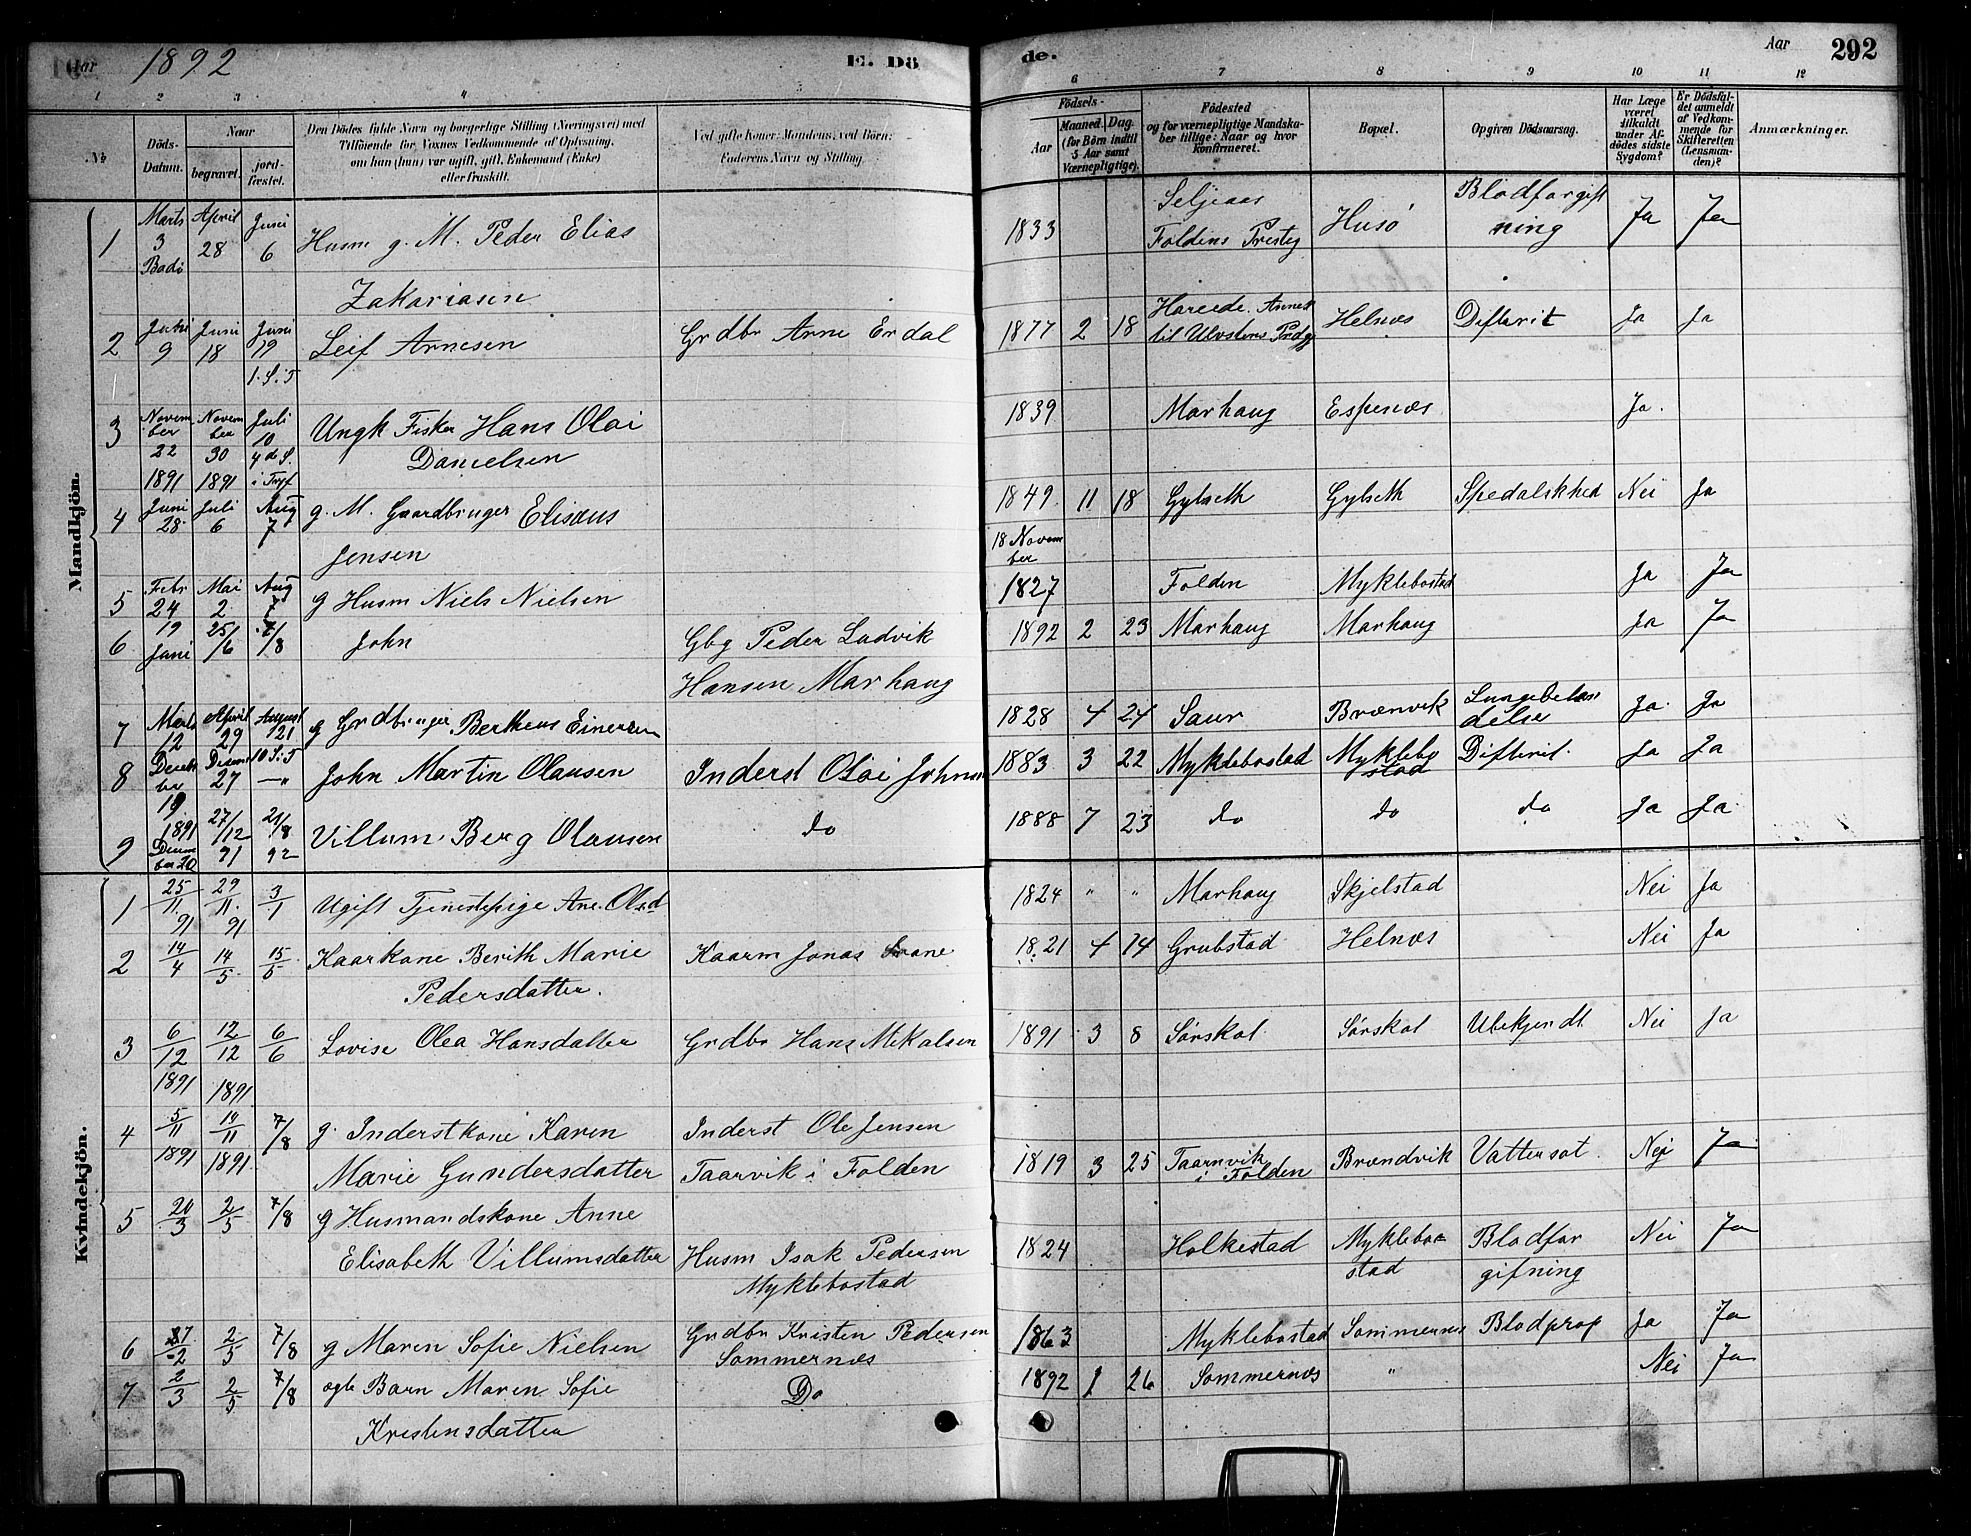 Aar 1892 E. Dö
de. Aar 292
1 2 3 4 5
6 7 8 9 10 11 12
No
Döds-Datum.
Naar
begravet.
jord-fæstet.
Den Dödes fulde Navn og borgerlige Stilling (Næringsvei) med
Tilföiende for Voxnes Vedkommende af Oplysning,
om han (hun) var ugift, gift, Enkemand (Enke)
eller fraskilt.
Ved gifte Koner: Mandens, ved Börn:
Faderens Navn og Stilling.
Födsels-
Aar
Maaned. Dag.
(for Börn indtil
5 Aar samt
Værnepligtige).
Födested
og for værnepligtige Mandska-
ber tillige: Naar og hvor
konfirmeret.
Bopæl.
Opgiven Dödsaarsag.
Har Læge
været
tilkaldt
under Af-
dödes sidste
Sygdom?
Er Dödsfal-
det anmeldt
af Vedkom-
mende for
Skifteretten
(Lensman-
den)?
Anmærkninger.
Mandkjön.
1 Marts 3 Bodö April 28 Juni 6 Husm g. M. Peder Elias
Zakariasen
1833 Seljeaas Foldens Presteg Husö Blodforgift ning Ja Ja
2 Juni 9 Juni 18 Juni 19 1. S. i T Leif Arnesen Grdbr Arne Erdal
1877 2 18 Hareide Annex til Ulvstens Prdg Helnæs Difterit Ja Ja
3 November 22 1891 November 30 1891 Juli 10 4de S. i Tryf Ungk Fisker Hans Olai
Danielsen
1839 Marhaug Espenæs Ja.
4 Juni 28 Juli 6 Aug 7 g. M. Gaardbruger Elisæus
Jensen
1849 11 18 Gylseth Gylseth Spedalskhed Nei Ja
18 November
5 Febr 24 Mai 2 Aug 7 g Husm Niels Nielsen
1827 Folden Myklebostad Ja Ja
6 19 Juni 25/6 7/8 John Gbg Peder Ludvik
Hansen Marhaug
1892 2 23 Marhaug Marhaug Ja Ja
7 Marts 12 April 29 August 21 g Grdbruger Bertheus Einersen
1828 4 24 Saur Brænvik Lungebetændelse Ja Ja
8 December 19 1891 Decem 27 10 S. i T —"— John Martin Olausen Inderst Olai Johnsen
1883 3 22 Myklebostad Myklebostad Difterit Ja Ja
9 December 20 27/12 91 21/8 92 Villum Berg Olausen do
1888 7 23 do do do Ja Ja
Kvindekjön.
1 25/11 91 29/11 91 3/1 Ugift Tjenestepige Ane Olsd
1824 " " Marhaug Skjelstad Nei Ja
2 14/4 14/5 15/5 Kaarkone Berith Marie Kaarm Jonas
Pedersdatter.
1821 4 14 Grubstad Helnæs Nei Ja
3 6/12 1891 12/12 1891 6/6 Lovise Olea Hansdatter Grdbr Hans Mikalsen
1891 3 8 Sørskot Sørskot Ubekjendt Nei Ja
4 5/11 1891 14/11 1891 7/8 g. Inderstkone Karen Inderst Ole Jensen
Marie Gundersdatter Taarvik i Folden
1819 3 25 Taarnvik i Folden Brændvik Vattersot. Nei Ja
5 20/3 2/5 7/8 g Husmandskone Anne
Elisabeth Villumsdatter Husm Isak Pedersen
Myklebostad
1824 Holkestad Myklebostad Blodforgifning Nei Ja
6 27/2 2/5 7/8 g Maren Sofie Nielsen Grdbr Kristen Pedersen
Sommernæs
1863 Myklebostad Sommernes Blodprop Ja Ja
7 2/3 2/5 7/8 ægte Barn Maren Sofie Do
Kristensdatter
1892 1 26 Sommernæs " Nei Ja